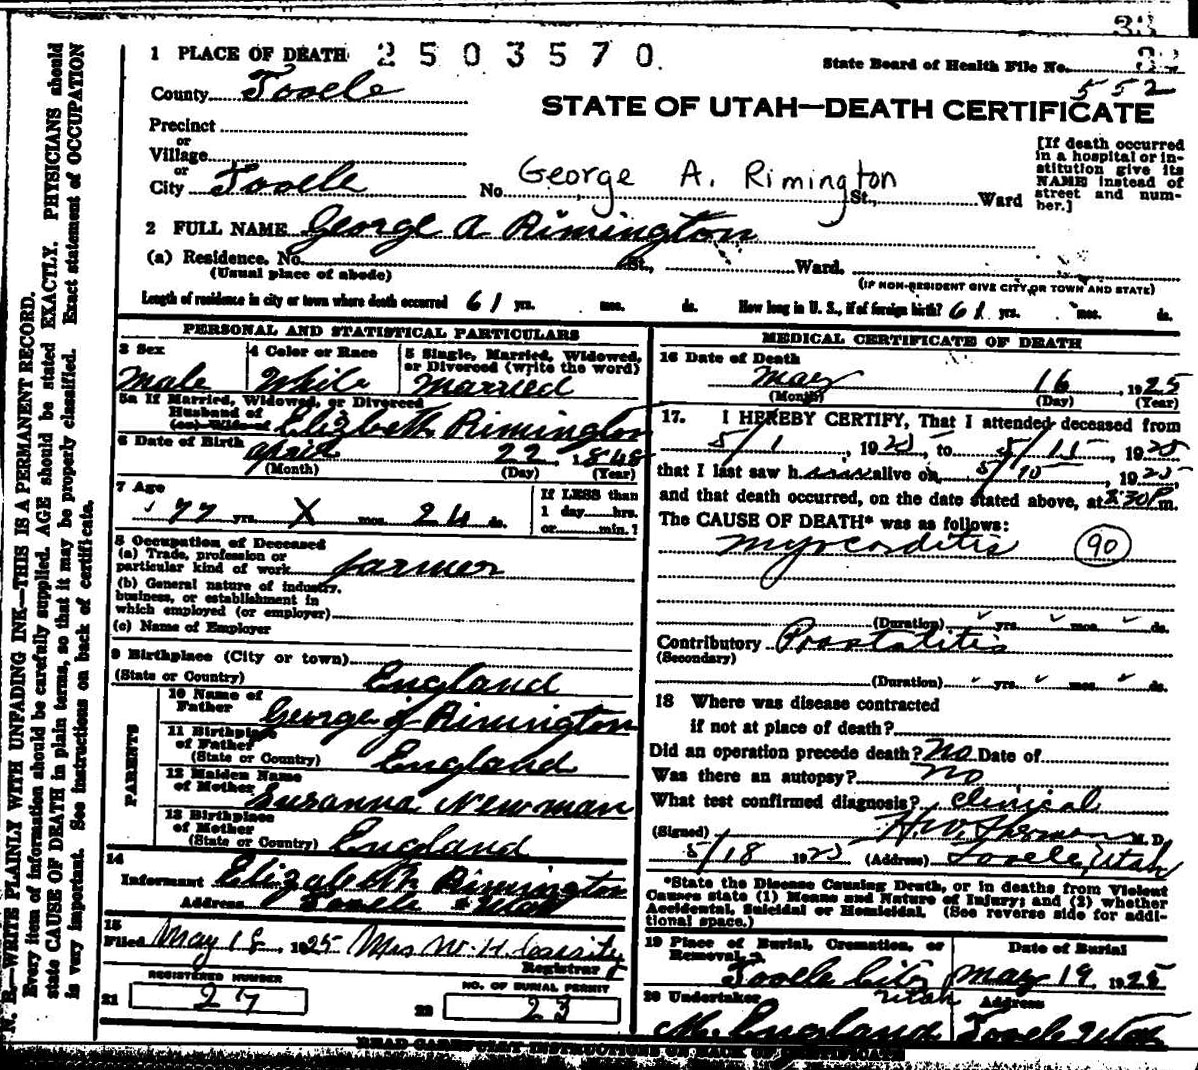 33
1 PLACE OF DEATH 2503570
State Board of Health File No. 82
552
County Tooele
STATE OF UTAH—DEATH CERTIFICATE
Precinct
or
Village
or
City Tooele No. George A. Rimington St., Ward
[If death occurred in a hospital or institution give its NAME instead of street and number.]
2 FULL NAME George A Rimington
(a) Residence. No. St., Ward.
(Usual place of abode) (IF NON-RESIDENT GIVE CITY OR TOWN AND STATE)
Length of residence in city or town where death occurred 61 yrs. mos. ds. How long in U. S., if of foreign birth? 61 yrs. mos. ds.
PERSONAL AND STATISTICAL PARTICULARS
3 Sex
Male
4 Color or Race
White
5 Single, Married, Widowed, or Divorced (write the word)
Married
5a If Married, Widowed, or Divorced
Husband of
(or) Wife of Elizbeth Rimington
6 Date of Birth April 22 1848
(Month) (Day) (Year)
7 Age
77 yrs. X mos. 24 ds.
If LESS than
1 day hrs.
or min.?
8 Occupation of Deceased
(a) Trade, profession or
particular kind of work farmer
(b) General nature of industry,
business, or establishment in
which employed (or employer)
(c) Name of Employer
9 Birthplace (City or town)
(State or Country) England
PARENTS
10 Name of
Father George J Rimington
11 Birthplace
of Father
(State or Country) England
12 Maiden Name
of Mother Susanna Newman
13 Birthplace
of Mother
(State or Country) England
14
Informant Elizabeth Rimington
Address Tooele Utah
15
Filed May 18 1925 Mrs W. H. Cassity
Registrar
REGISTERED NUMBER
21 27
NO. OF BURIAL PERMIT
22 23
MEDICAL CERTIFICATE OF DEATH
16 Date of Death
May 16, 1925
(Month) (Day) (Year)
17. I HEREBY CERTIFY, That I attended deceased from
5/1, 1925, to 5/15, 1925
that I last saw h alive on 5/15, 1925,
and that death occurred, on the date stated above, at 8:30 P m.
The CAUSE OF DEATH* was as follows:
Myocarditis 90
(Duration) yrs. mos. ds.
Contributory Prostatitis
(Secondary)
(Duration) yrs. mos. ds.
18 Where was disease contracted
if not at place of death?
Did an operation precede death? No Date of
Was there an autopsy? no
What test confirmed diagnosis? Clinical
(Signed) M.D.
5/18 1925 (Address) Tooele, Utah
*State the Disease Causing Death, or in deaths from Violent
Causes state (1) Means and Nature of Injury; and (2) whether
Accidental, Suicidal or Homicidal. (See reverse side for additional space.)
19 Place of Burial, Cremation, or
Removal
Tooele City
Utah
Date of Burial
May 19, 1925
20 Undertaker
M. England
Address
Tooele Utah
READ CAREFULLY INSTRUCTIONS ON BACK OF CERTIFICATE
N. B.—WRITE PLAINLY WITH UNFADING INK—THIS IS A PERMANENT RECORD.
Every item of information should be carefully supplied. AGE should be stated EXACTLY. PHYSICIANS should
state CAUSE OF DEATH in plain terms, so that it may be properly classified. Exact statement of OCCUPATION
is very important. See instructions on back of certificate.